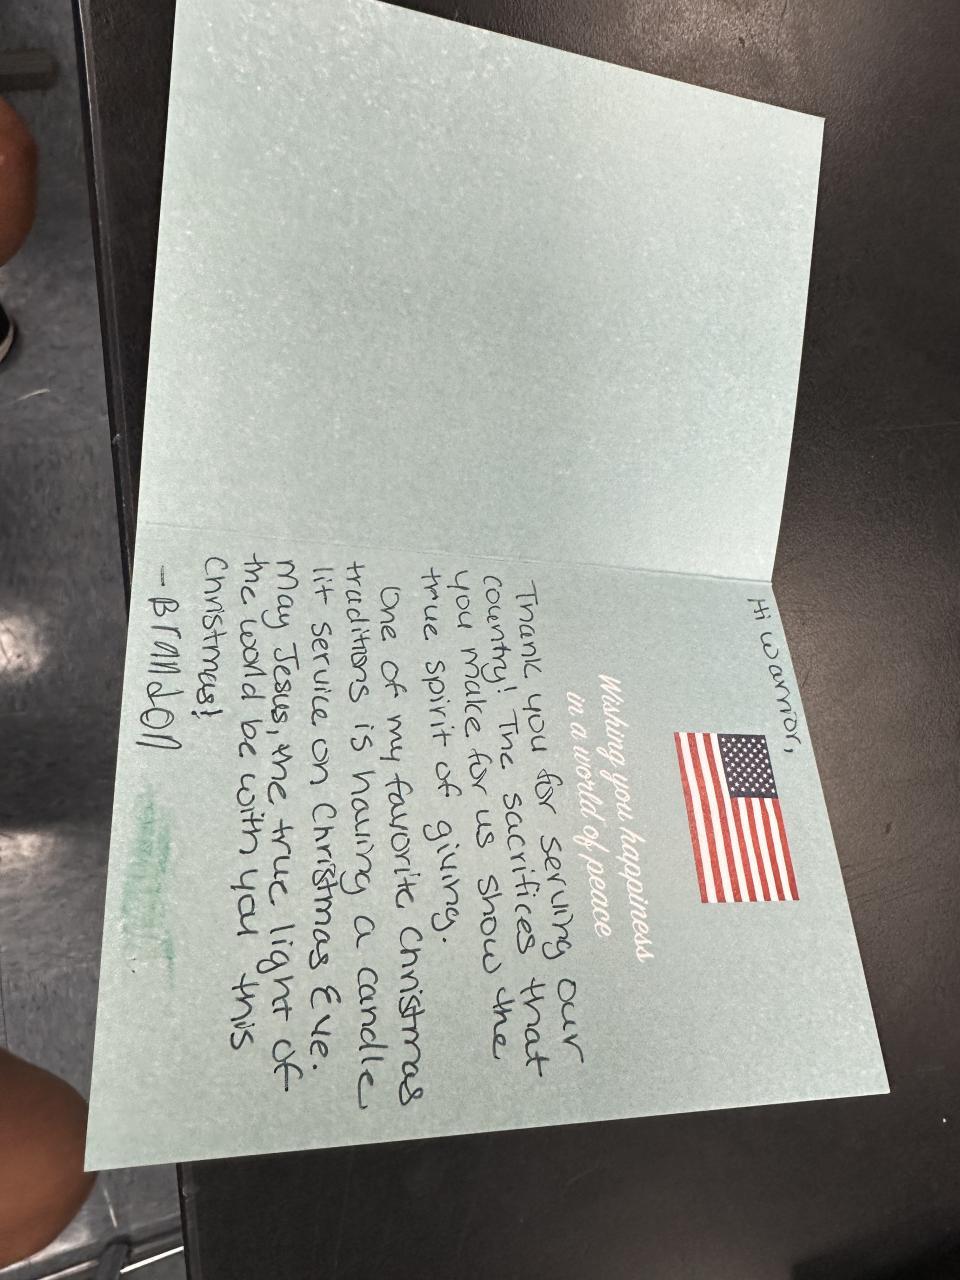 Hi Warrior,
Wishing you happiness
in a world of peace
Thank you for serving our
country! The sacrifices that
you make for us show the
true spirit of giving.
One of my favorite Christmas
traditions is having a candle
lit service on Christmas Eve.
May Jesus, the true light of
the world be with you this
Christmas!
- Brandon